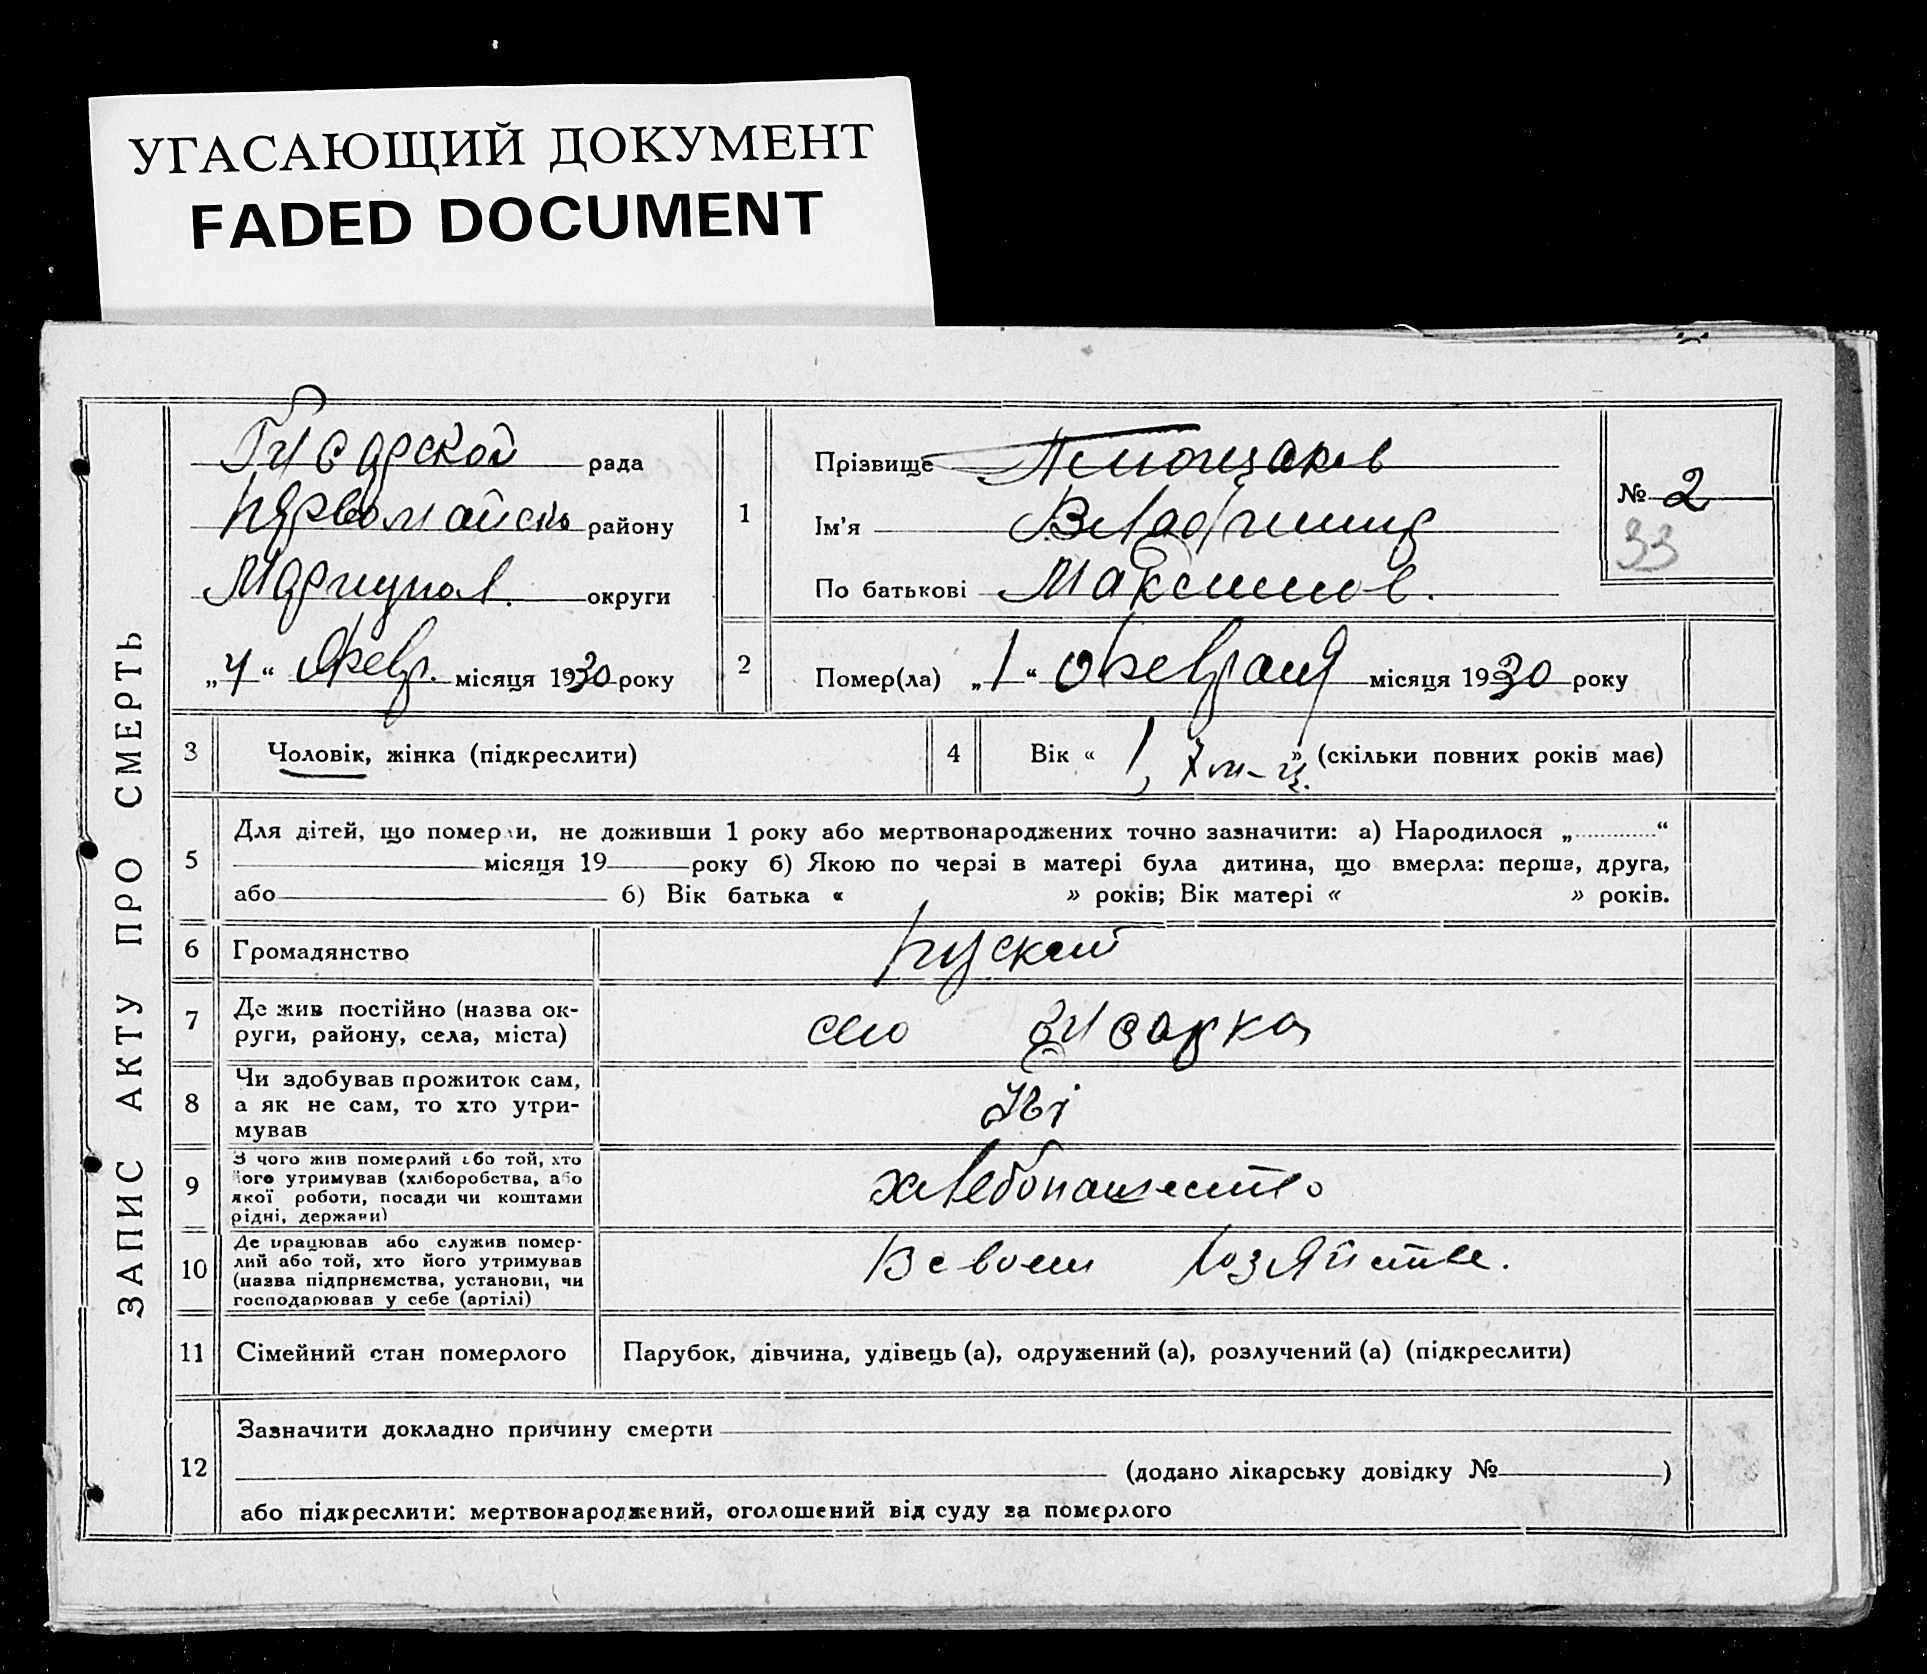 УГАСАЮЩИЙ ДОКУМЕНТ
FADED DOCUMENT
ЗАПИС АКТУ ПРО СМЕРТЬ
рада
Первомайско району
Мариупол. округи
„4“ Февр. місяця 1930 року
1
Прізвище
Ім’я Владимир
По батькові Максимов.
№ 2
33
2
Помер(ла) „1“ Февраля місяця 1930 року
3
Чоловік, жінка (підкреслити)
4
Вік « 1, 7 м-ц. » (скільки повних років має)
5
Для дітей, що померли, не доживши 1 року або мертвонароджених точно зазначити: а) Народилося „ “
місяця 19 року б) Якою по черзі в матері була дитина, що вмерла: перша, друга,
або б) Вік батька « » років; Вік матері « » років.
6
Громадянство
Руский
7
Де жив постійно (назва ок-
руги, району, села, міста)
село
8
Чи здобував прожиток сам,
а як не сам, то хто утри-
мував
9
З чого жив померлий або той, хто
його утримував (хліборобства, або
якої роботи, посади чи коштами
рідні, держави)
хлебопашество
10
Де працював або служив помер-
лий або той, хто його утримував
(назва підприємства, установи, чи
господарював у себе (артілі)
В своем хозяйстве.
11
Сімейний стан померлого
Парубок, дівчина, удівець (а), одружений (а), розлучений (а) (підкреслити)
12
Зазначити докладно причину смерти
(додано лікарську довідку № )
або підкреслити: мертвонароджений, оголошений від суду за померлого